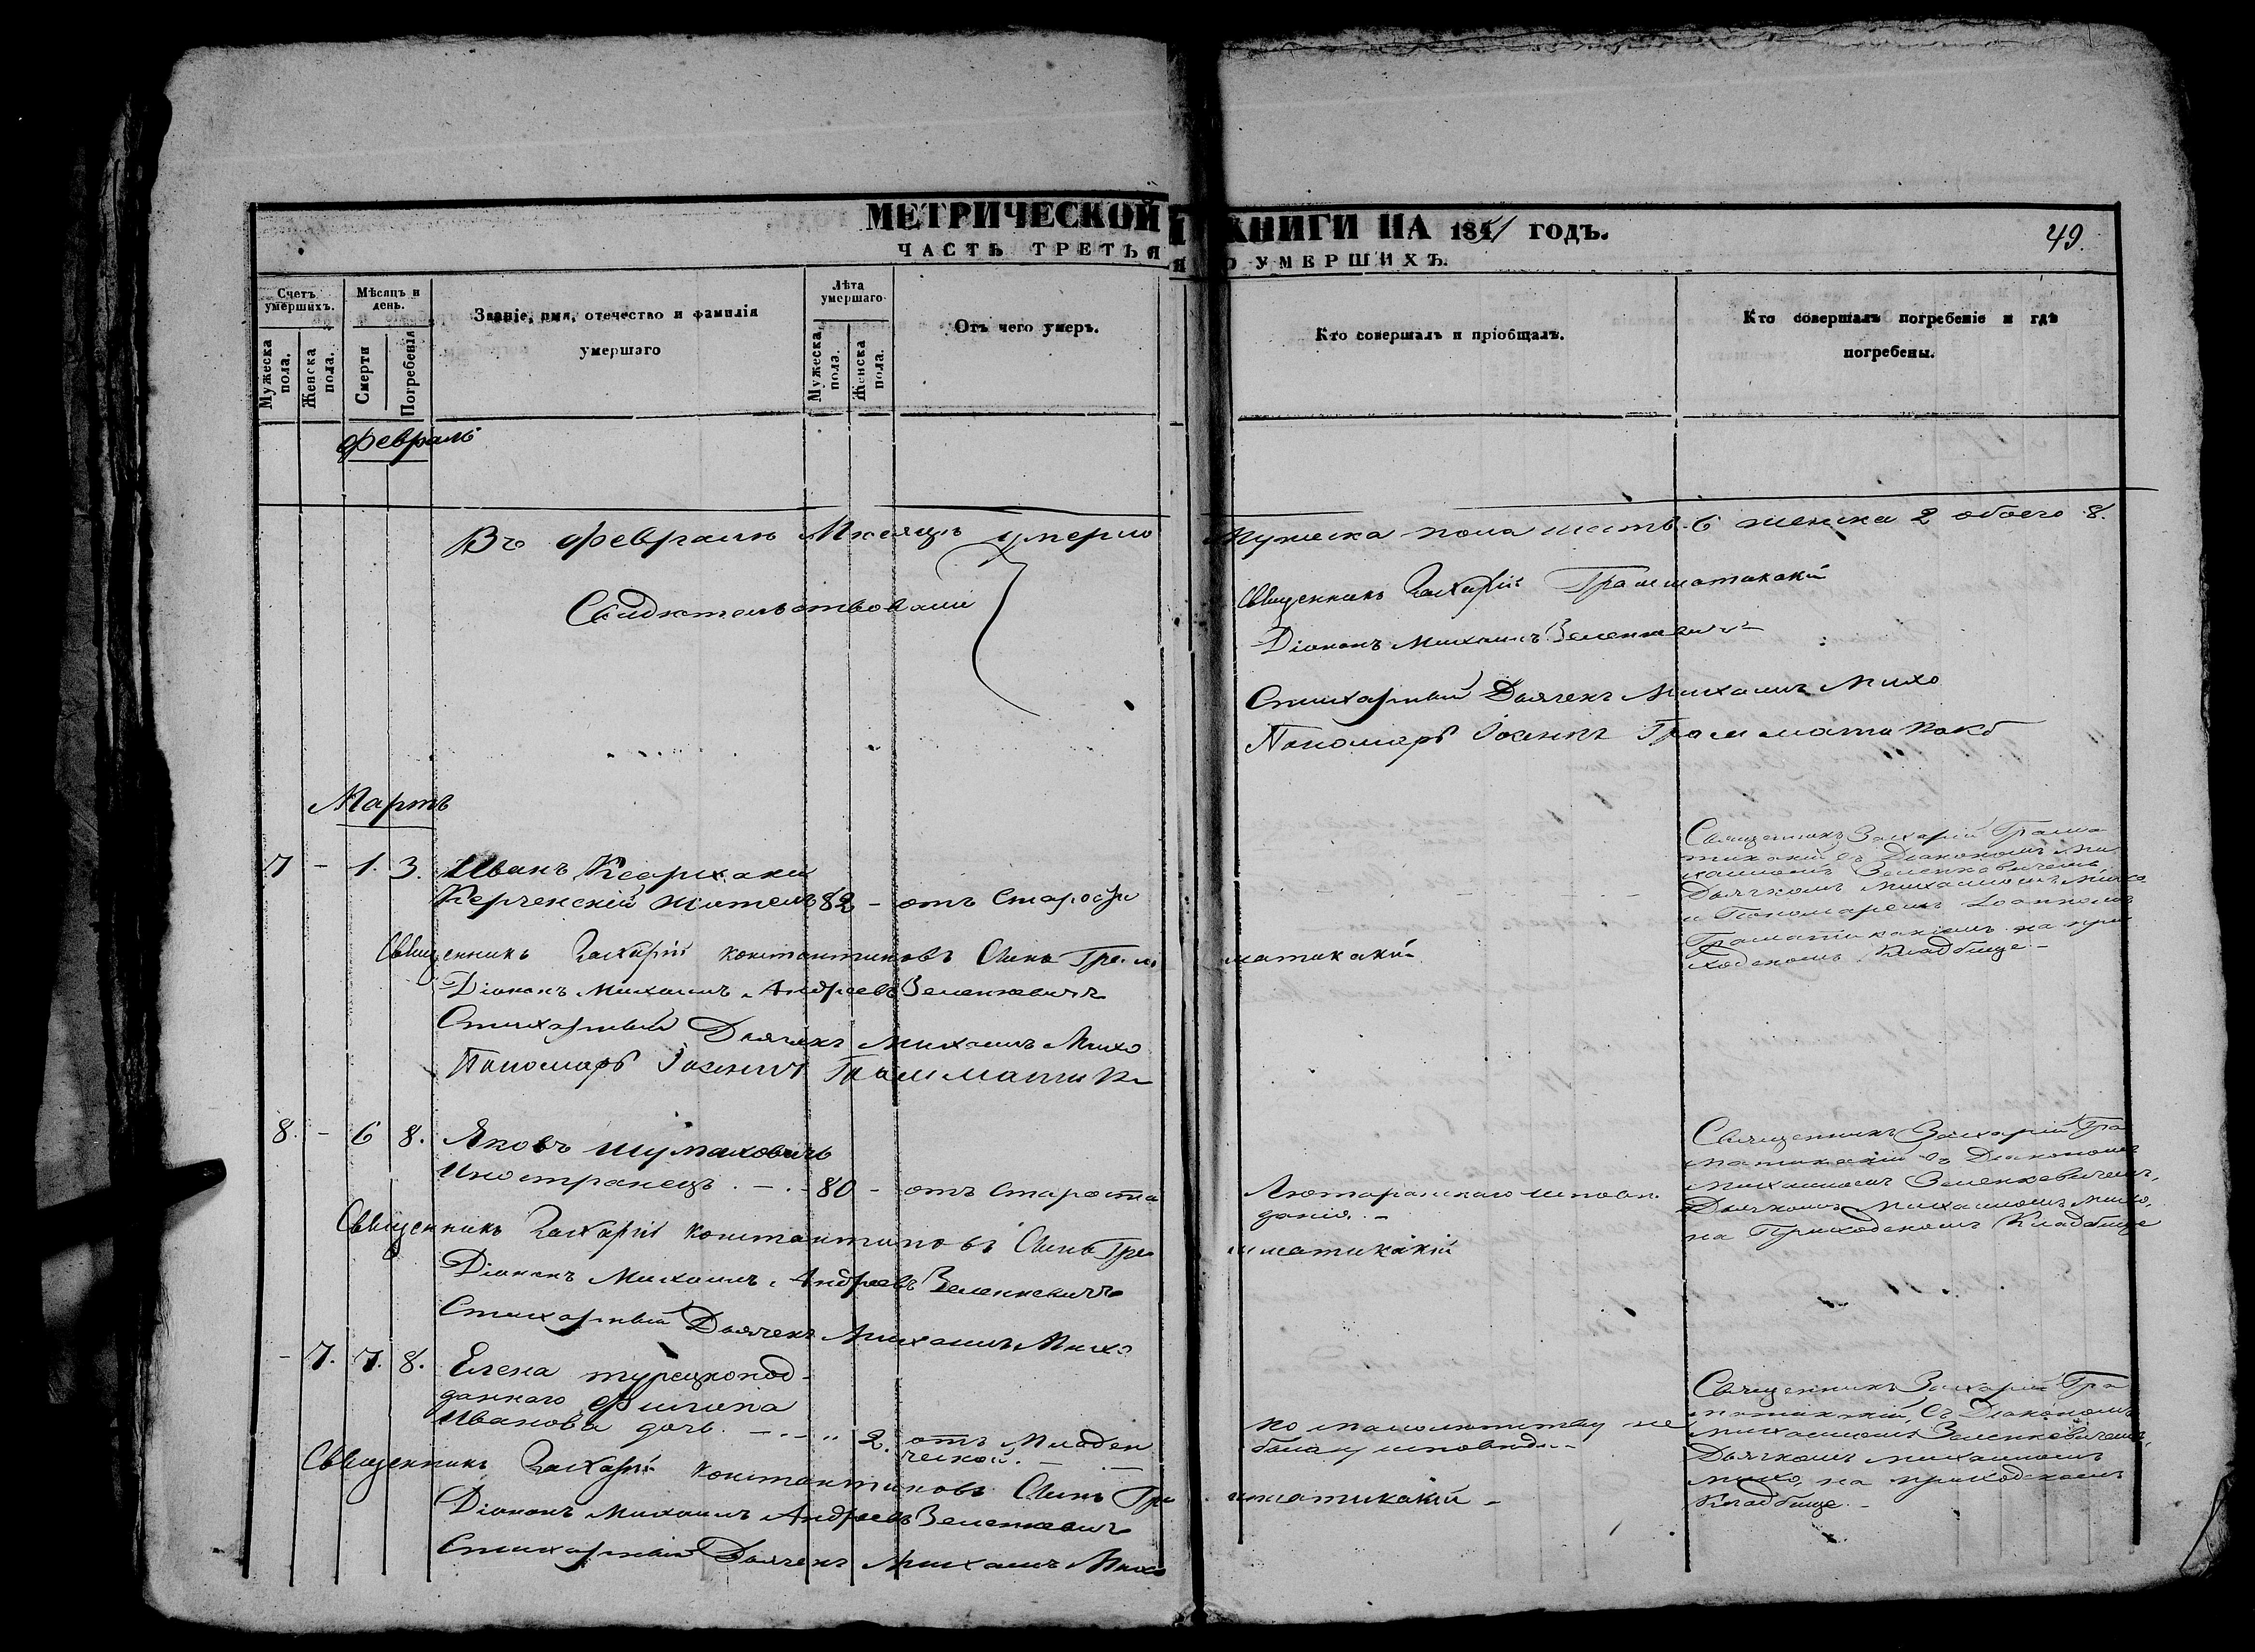 МЕТРИЧЕСКОЙ КНИГИ НА 1851 ГОДЪ.
49
ЧАСТЬ ТРЕТЬЯ О УМЕРШИХЪ.
Счетъ умершихъ.
Мужеска пола.
Женска пола.
Мѣсяцъ и день.
Смерти
Погребенія
Званіе, имя, отечество и фамилія
умершаго
Лѣта умершаго
Мужеска пола.
Женска пола.
Отъ чего умеръ.
Кто совершалъ и пріобщалъ.
Кто совершалъ погребеніе и гдѣ
погребены.
Февраль
Въ Февралѣ Мѣсяцѣ умерло Мужеска пола шесть 6 женска 2 обоего 8.
Свидѣтельствовали
Священникъ Захарій Грамматикакій
Діаконъ Михаилъ Зеленкевичъ
Стихарный Дьячекъ Михаилъ Михо
Пономарь Іоаннъ Грамматикакі
Мартъ
7 - 1. 3. Иванъ
Керченскій житель 82 - отъ Старости
Священникъ Захарій Грамма
тикакій съ Діакономъ Ми
хаиломъ Зеленкевичемъ
Дьячкомъ Михаиломъ Михо
и Пономаремъ Іоанномъ
Граматикакіемъ на при
ходскомъ Кладбище -
Священникъ Захарій Константиновъ Сынъ Грамматикакій
Діаконъ Михаилъ Андреевъ Зеленкевичъ
Стихарный Дьячекъ Михаилъ Михо
Пономарь Іоаннъ Грамматик
8. - 6 8. Яковъ
Иностранецъ. - . - 80 - отъ Староста
Лютеранскаго исповѣ
данія. -
Священникъ Захарій Гра
матикакій съ Діакономъ
Михаиломъ Зеленкевичемъ,
Дьячкомъ Михаиломъ Михо,
на Приходскомъ Кладбище
Священникъ Захарій Константиновъ Сынъ Грамматикакій
Діаконъ Михаилъ Андреевъ Зеленкевичъ
Стихарный Дьячекъ Михаилъ Михо
- 7. 7. 8. Елена турецкопод-
даннаго Филипа
Иванова дочь. - . - - " 2. отъ Младен
ческой. -
по малолетству не
была у исповѣди. -
Священникъ Захарій Гра
матикакій, съ Діакономъ
Михаиломъ Зеленкевичемъ,
Дьячкомъ Михаиломъ
Михо, на приходскомъ
Кладбище. -
Священникъ Захарій Константиновъ Сынъ Грамматикакій -
Діаконъ Михаилъ Андреевъ Зеленкевичъ
Стихарный Дьячекъ Михаилъ Михо